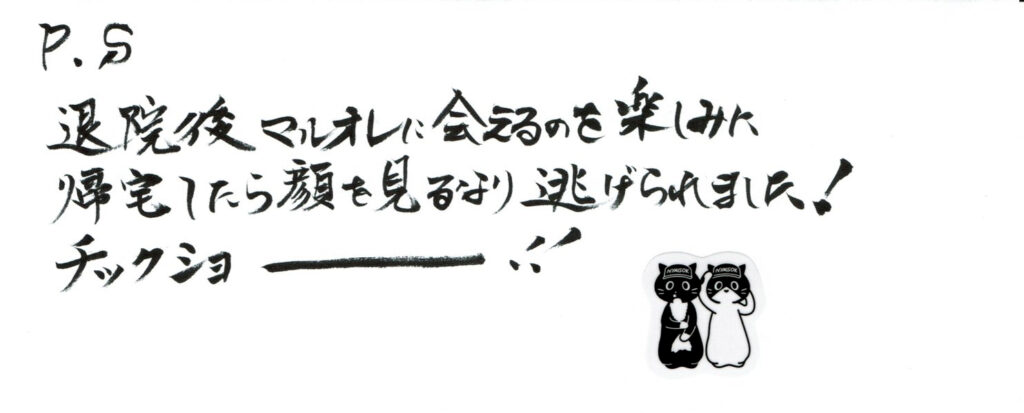 P.S
退院後マルオレに会えるのを楽しみに
帰宅したら顔を見るなり逃げられました!
チックショー!!